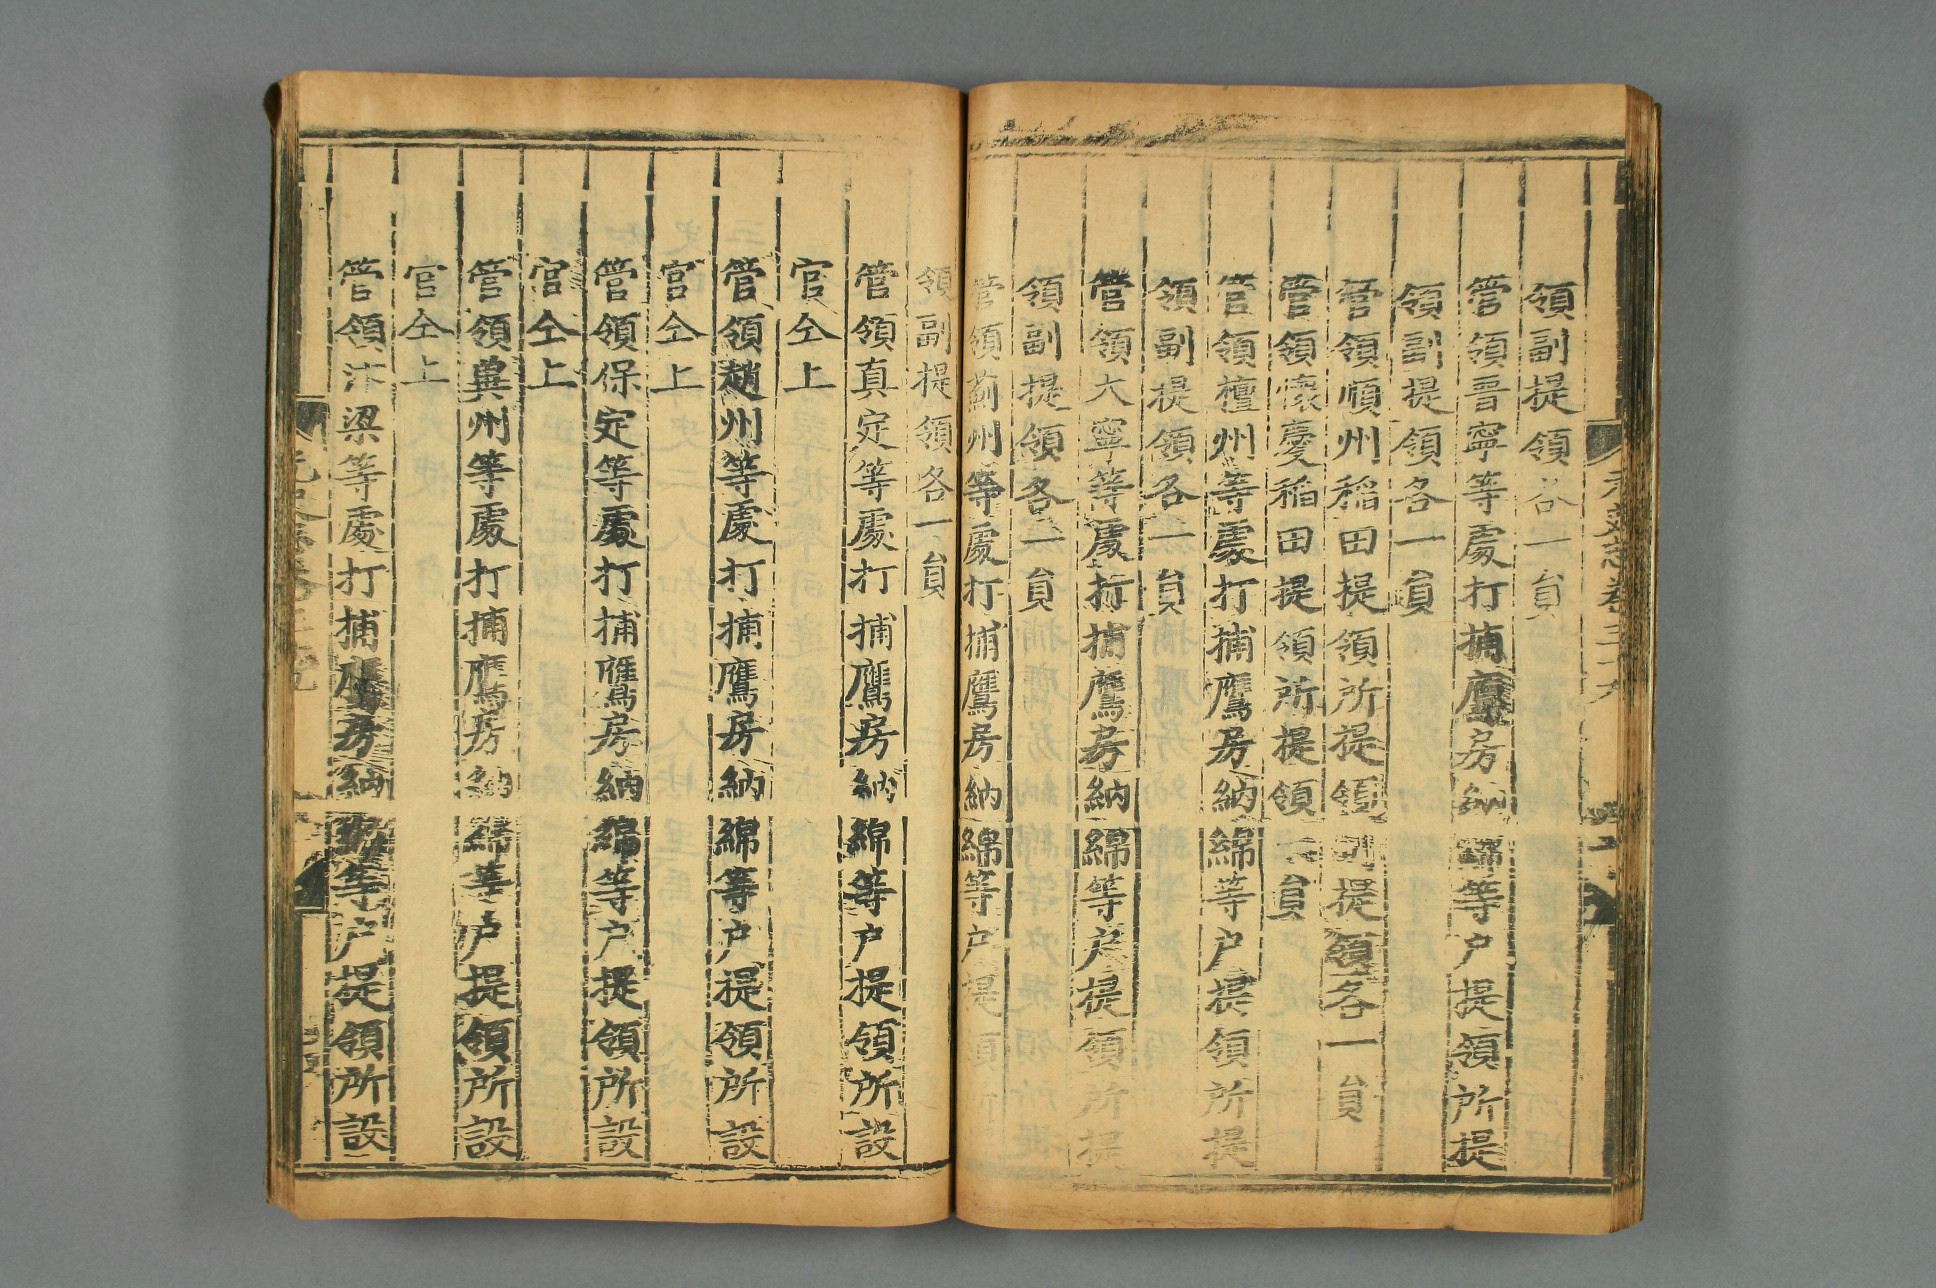 領副提領各一員
管領晋寧等處打捕鷹房納綿等户提領所提
領副提領各一員
管領順州稲田提領所提領副提領各一員
管領懷慶稲田提領所提領一員
管領檀州等處打捕鷹房納綿等户提領所提
領副提領各一員
管領大寧等處打捕鷹房納綿等户提領所提
領副提領各一員
管領薊州等處打捕鷹房納綿等户提領所
領副提領各一員
管領真定等處打捕鷹房納綿等户提領所設
官仝上
管領趙州等處打捕鷹房納綿等户提領所設
官仝上
管領保定等處打捕鷹房納綿等户提領所設
官仝上
管領冀州等處打捕鷹房納綿等户提領所設
官仝上
管領汴梁等處打捕鷹房納綿等户提領所設